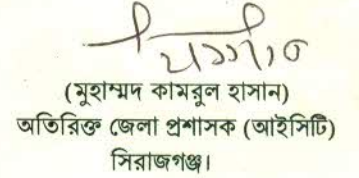 (মুহাম্মদ কামরুল হাসান)
অতিরিক্ত জেলা প্রশাসক (আইসিটি)
সিরাজগঞ্জ।